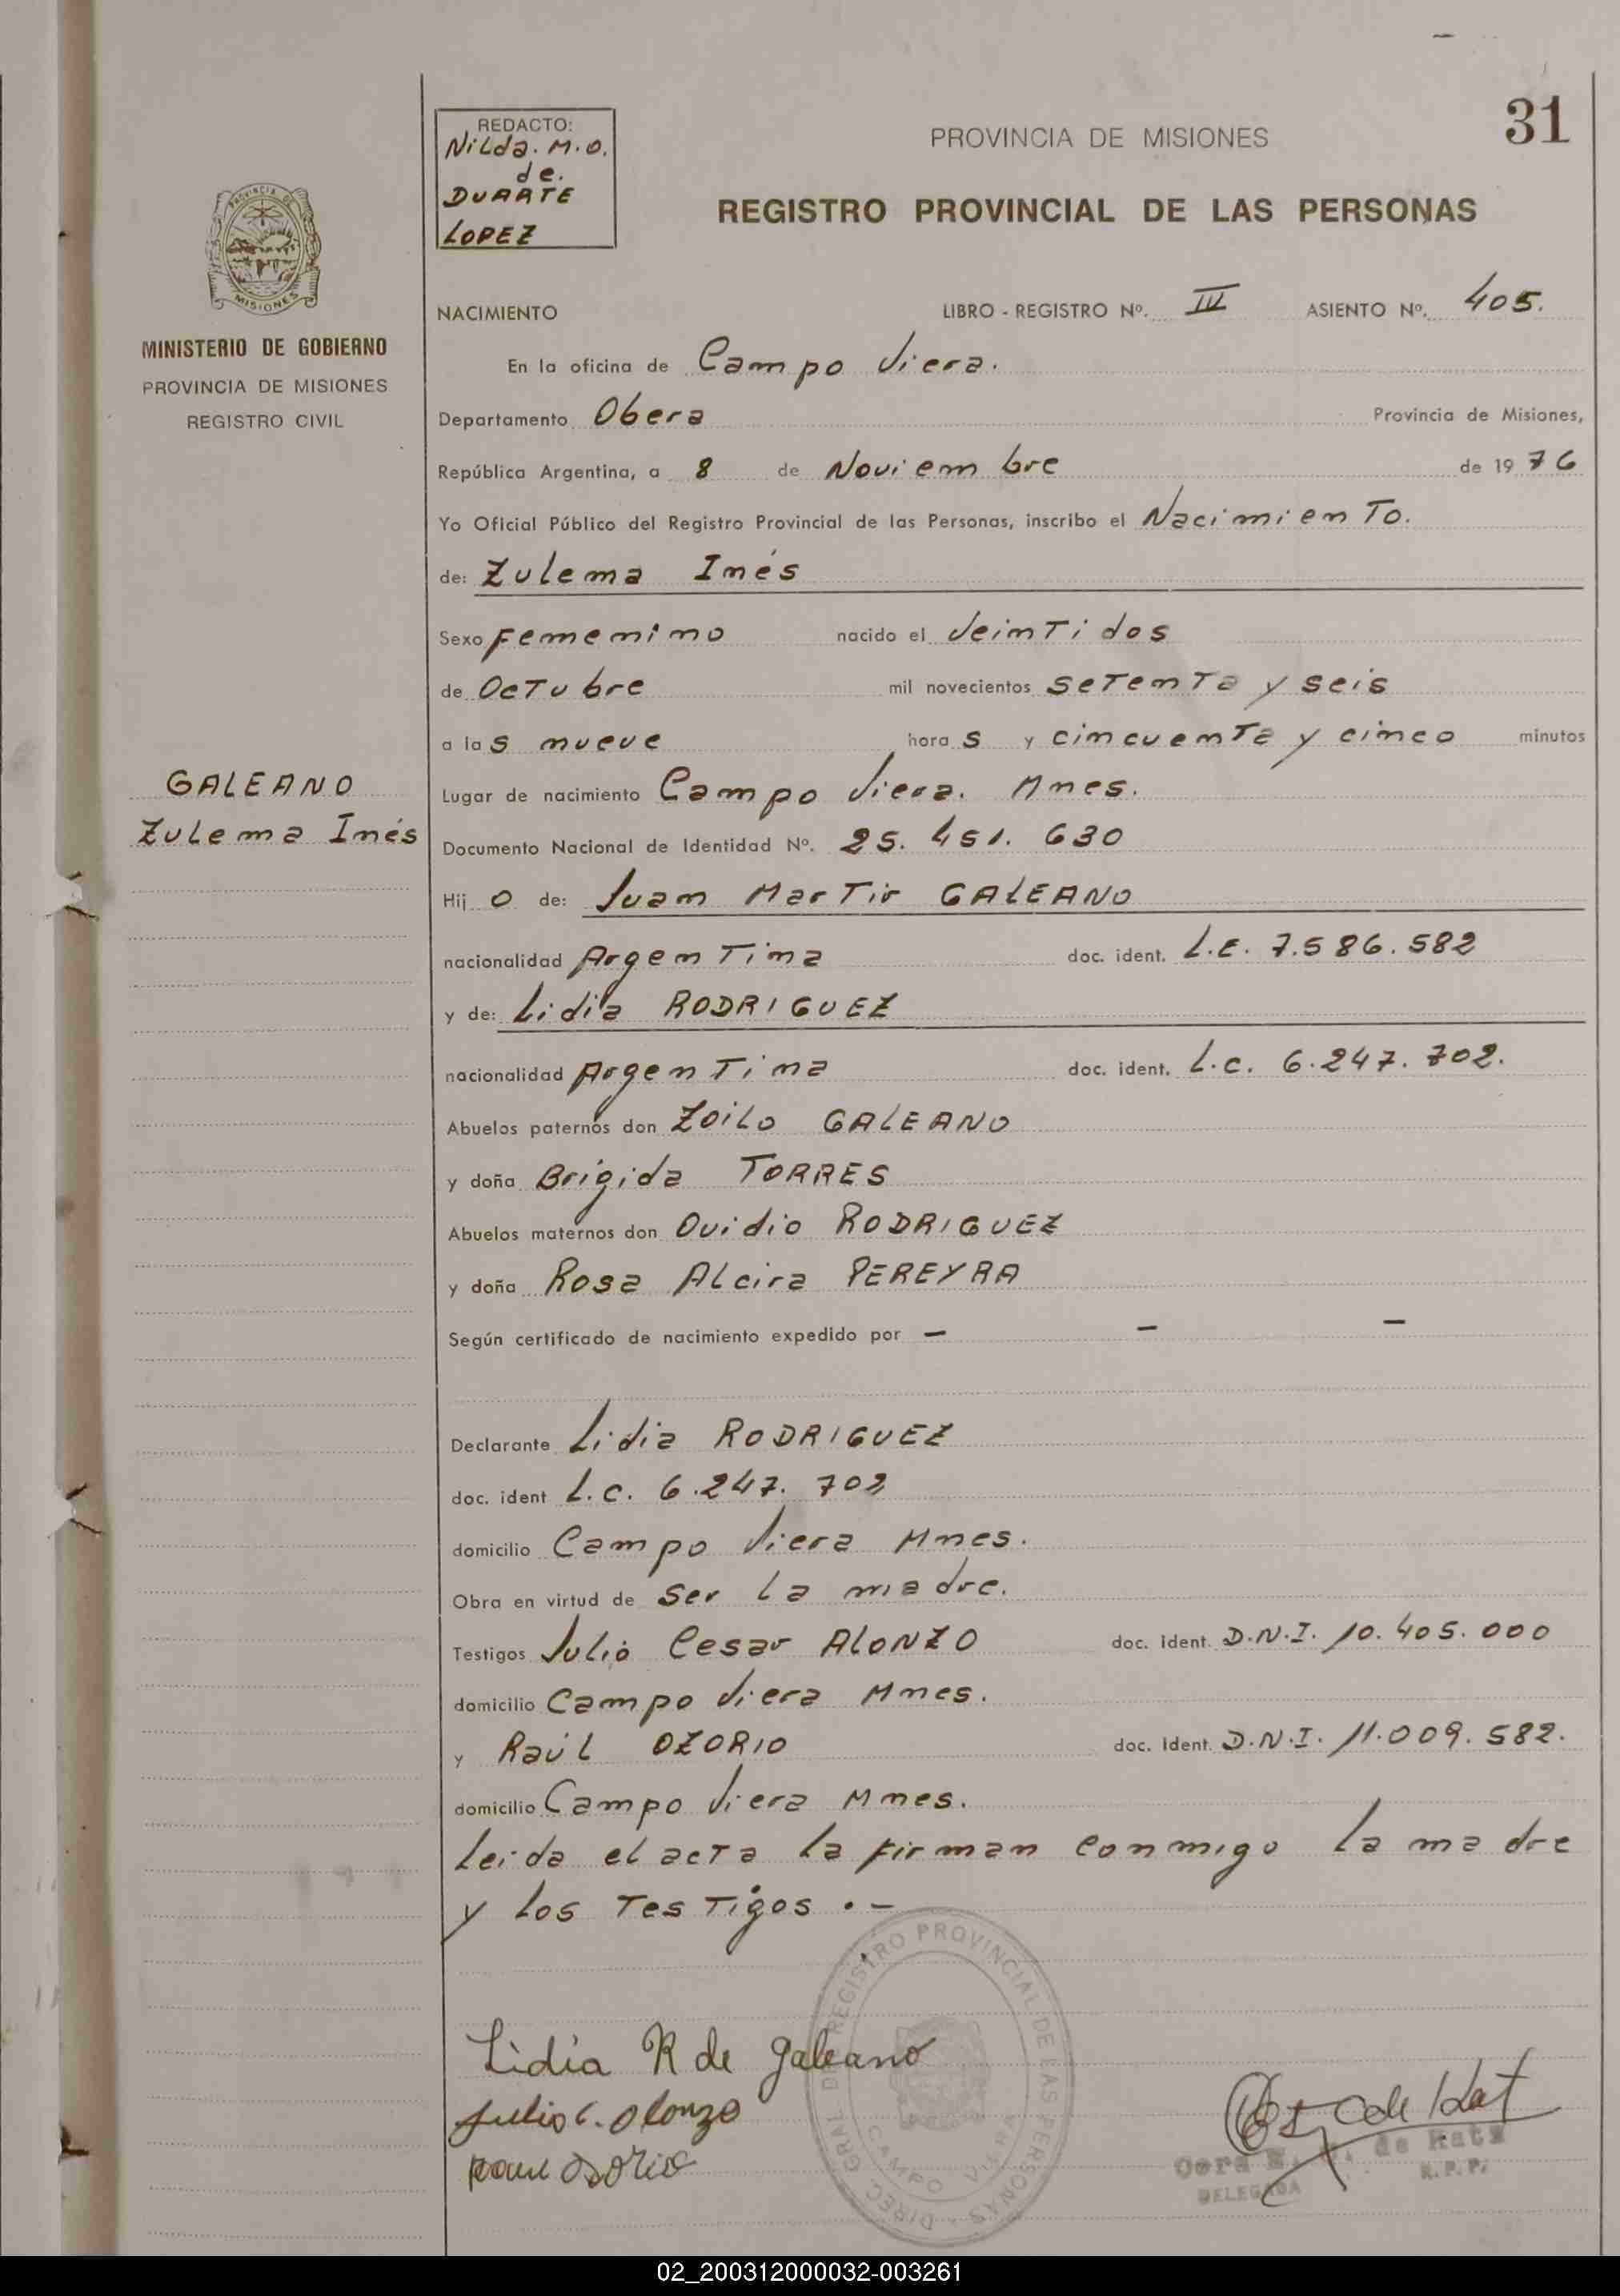 31
REDACTO:
Nilda. M. O.
de.
DUARTE
LOPEZ
PROVINCIA DE MISIONES
REGISTRO PROVINCIAL DE LAS PERSONAS
PROVINCIA DE
MISIONES
MINISTERIO DE GOBIERNO
PROVINCIA DE MISIONES
REGISTRO CIVIL
NACIMIENTO LIBRO - REGISTRO Nº. IV ASIENTO Nº. 405.
En la oficina de Campo Viera.
Departamento Obera Provincia de Misiones,
República Argentina, a 8 de Noviembre de 1976
Yo Oficial Público del Registro Provincial de las Personas, inscribo el Nacimiento.
de: Zulema Inés
Sexo Femenino nacido el Veintidos
de Octubre mil novecientos setenta y seis
a las nueve horas y cincuenta y cinco minutos
GALEANO
Zulema Inés
Lugar de nacimiento Campo Viera. Mnes.
Documento Nacional de Identidad Nº. 25.451.630
Hijo de: Juan Martir GALEANO
nacionalidad Argentina doc. ident. L.E. 7.586.582
y de: Lidia RODRIGUEZ
nacionalidad Argentina doc. ident. L.C. 6.247.702.
Abuelos paternos don Zoilo GALEANO
y doña Brigida TORRES
Abuelos maternos don Ovidio RODRIGUEZ
y doña Rosa Alcira PEREYRA
Según certificado de nacimiento expedido por — — —
Declarante Lidia RODRIGUEZ
doc. ident L.C. 6.247.702
domicilio Campo Viera Mnes.
Obra en virtud de ser la madre.
Testigos Julio Cesar ALONZO doc. ident. D.N.I. 10.405.000
domicilio Campo Viera Mnes.
y Raúl OZORIO doc. Ident. D.N.I. 11.009.582.
domicilio Campo Viera Mnes.
Leida el acta la firman conmigo la madre
y los testigos.-
Lidia R de Galeano
Julio C. Alonzo
Raul Osorio
DIREC. GRAL. DE REGISTRO PROVINCIAL DE LAS PERSONAS
CAMPO VIERA
de Katz
DELEGADA
R.P.P.
02_200312000032-003261